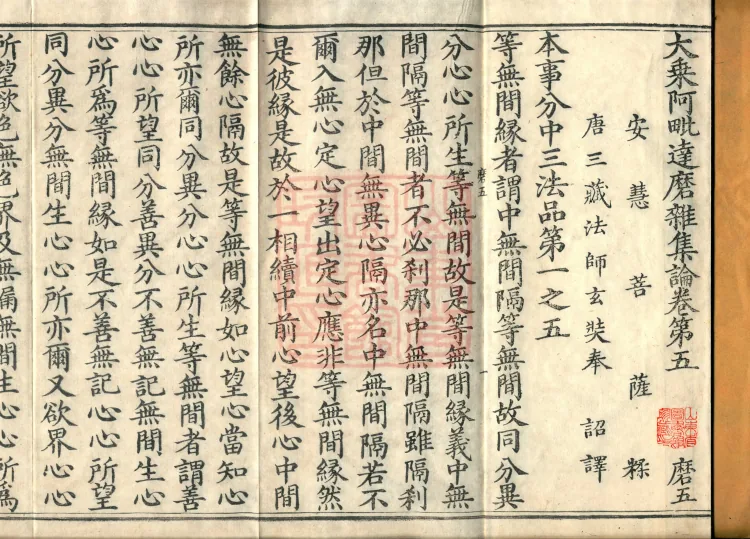 大乘阿毗達磨雜集論卷第五 磨五
安慧菩薩糅
唐三藏法師玄奘奉 詔譯
本事分中三法品第一之五
等無間緣者謂中無間隔等無間故同分異
分心心所生等無間故是等無間緣義中無
磨五
間隔等無間者不必刹那中無間隔雖隔刹
那但於中間無異心隔亦名中無間隔若不
爾入無心定心望出定心應非等無間緣然
是彼緣是故於一相續中前心望後心中間
無餘心隔故是等無間緣如心望心當知心
所亦爾同分異分心心所生等無間者謂善
心心所望同分善異分不善無記無間生心
心所爲等無間緣如是不善無記心心所望
同分異分無間生心心所亦爾又欲界心心
所望欲色無色界及無漏無間生心心所爲